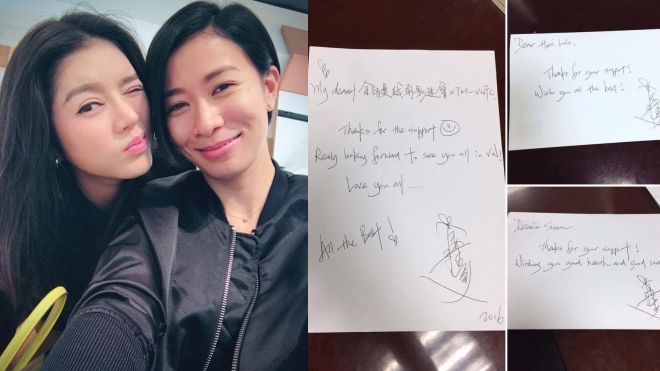 My dearest 佘詩曼越南影迷會 x TM-VNFC!
Thanks for the support
Really looking forward to see you all in VN!
Love you all ......
All the Best!
2016
Dear Hoài Liên,
Thanks for your support!
Wish you all the best!
Thanks for your support!
Wishing you good health and good